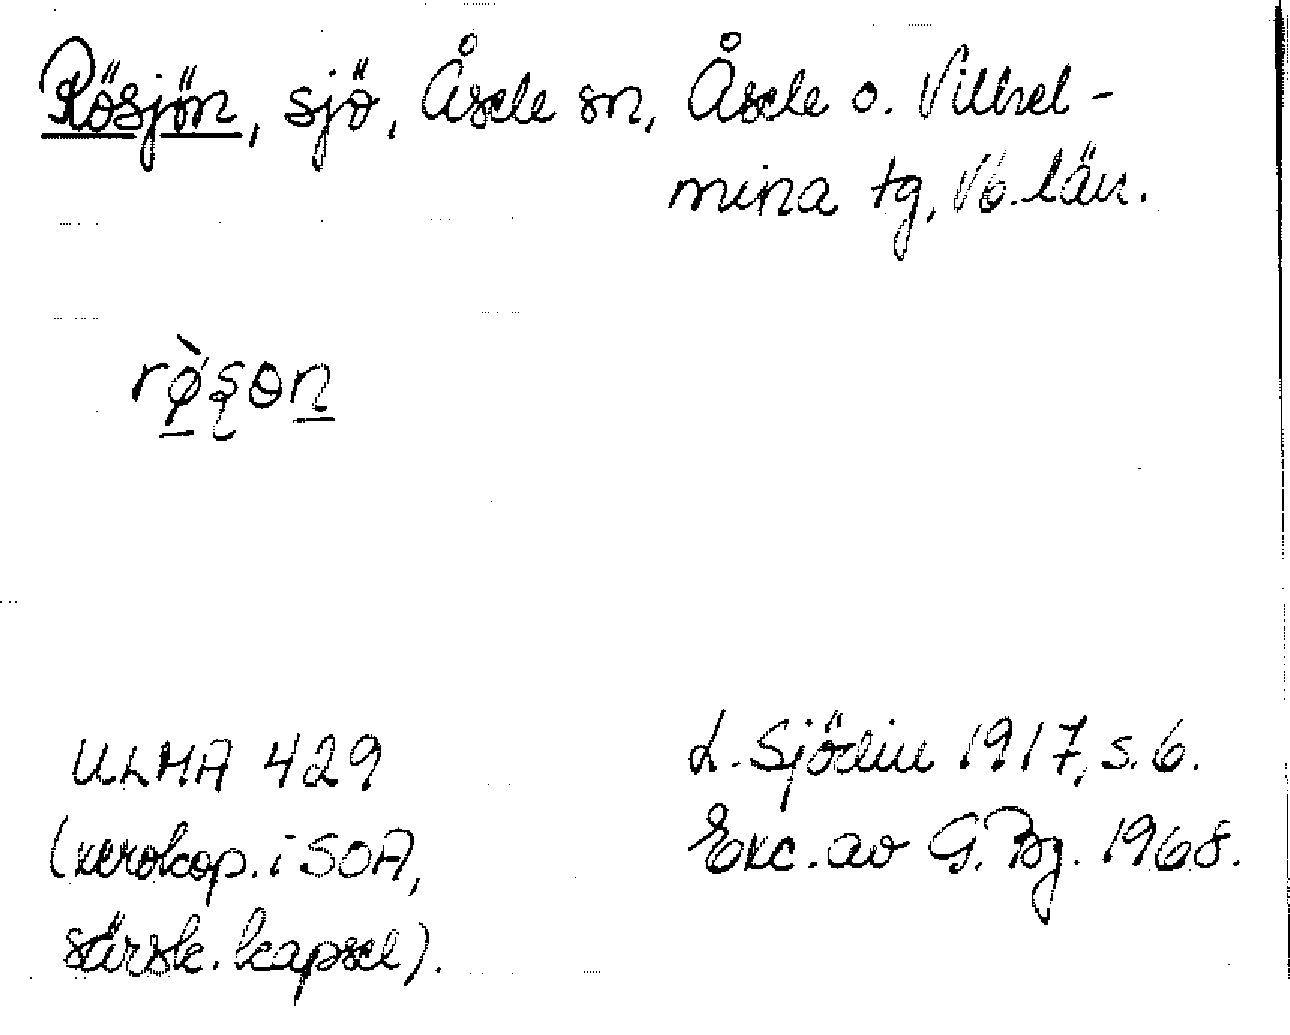 Rösjön, sjö, Åsele sn, Åsele o. Vilhel-
mina tg, Vb. län.
rø̀sɵn
ULMA 429
(xerokop. i SOA,
särsk. kapsel).
L. Sjödin 1917, s. 6.
Exc. av G. Bg. 1968.